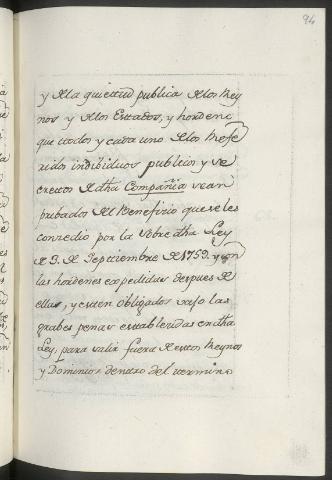 94
y de la quietud publica de los Rey
nos y de los Estados, y hordeno
que todos y cada uno de los refe
ridos indibiduos publicos y se
cretos de dha Compañia sean
pribados del Beneficio que se les
concedio por la sobre dha Ley
de 3. de Septiembre de 1759. y con
las hordenes expedidas despues de
ellas, y esten obligados vajo las
grabes penas establecidas en dha
Ley, para salir fuera de estos Reynos
y Dominios dentro del termino